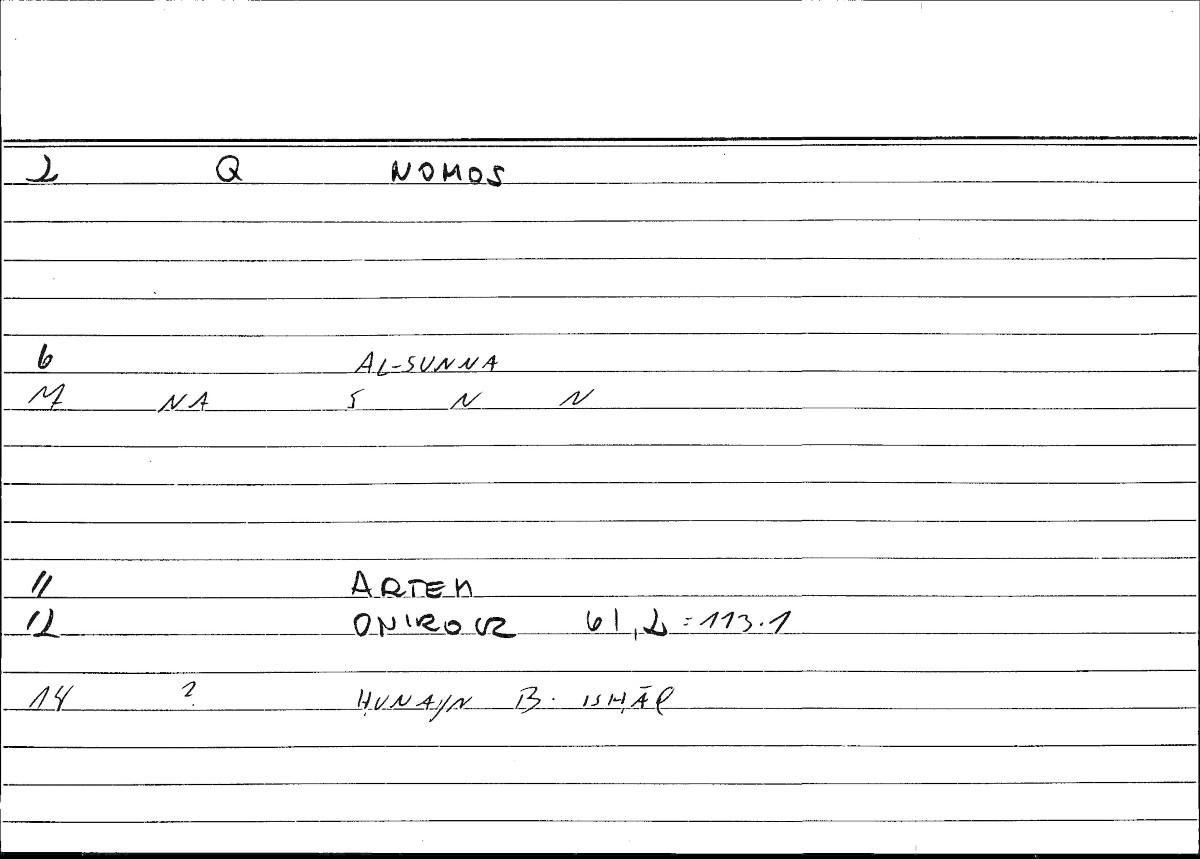 2 Q NOMOS
6 AL-SUNNA
M NA S N N
11 ARTEM
12 ONIROCR 61,2=113.1
14 ? ḤUNAYN B. ISḤĀQ